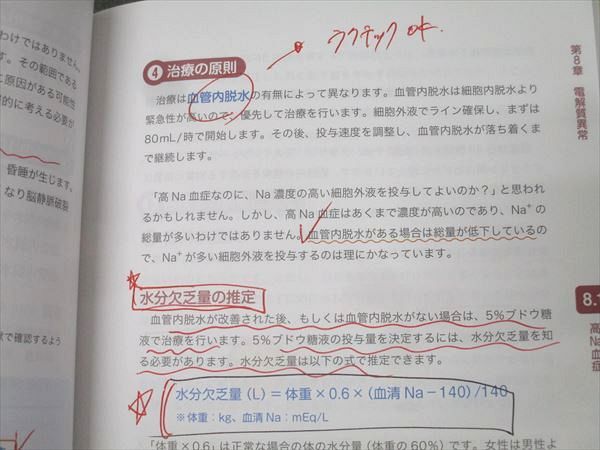 わけではありません。
す。その範囲である
に原因がある可能性
的に考える必要が
昏睡が生じます。
なり脳静脈破裂
で確認するよう
ラクテック ok.
④ 治療の原則
治療は血管内脱水の有無によって異なります。血管内脱水は細胞内脱水より
緊急性が高いので、優先して治療を行います。細胞外液でライン確保し、まずは
80mL/時で開始します。その後、投与速度を調整し、血管内脱水が落ち着くま
で継続します。
「高Na血症なのに、Na濃度の高い細胞外液を投与してよいのか？」と思われ
るかもしれません。しかし、高Na血症はあくまで濃度が高いのであり、Na⁺の
総量が多いわけではありません。血管内脱水がある場合は総量が低下しているの
で、Na⁺が多い細胞外液を投与するのは理にかなっています。
水分欠乏量の推定
血管内脱水が改善された後、もしくは血管内脱水がない場合は、5%ブドウ糖
液で治療を行います。5%ブドウ糖液の投与量を決定するには、水分欠乏量を知
る必要があります。水分欠乏量は以下の式で推定できます。
水分欠乏量（L）＝体重×0.6×（血清Na－140）/140
※体重：kg、血清Na：mEq/L
「体重×0.6」は正常な場合の体の水分量（体重の60%）です。女性は男性よ
第8章 電解質異常
8.1
高Na血症